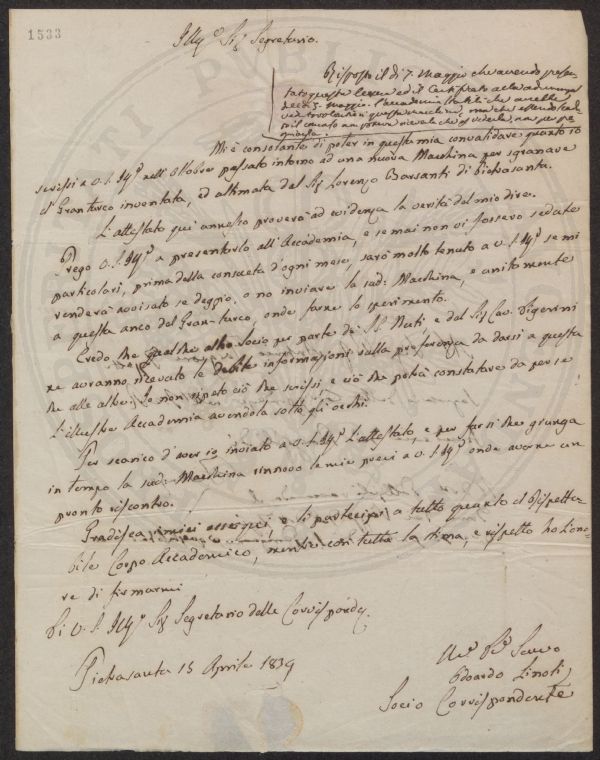 1533
Illmo Sig. Segretario.
Risposto il dì 7. Maggio che avendo presen-
tato questa lettera ed il Certificato all'adunanza
de' 5. Maggio. l'accademia
veder volentieri questa macchina, ma che
Mi è consolante di poter in questa mia convalidare quanto io
scrissi a V. S. Illma nell'Ottobre passato intorno ad una nuova Macchina per sgranare
il Gran turco inventata, ed ultimata dal Sig. Lorenzo Barsanti di Pietrasanta.
L'attestato quì annesso proverà ad evidenza la verità del mio dire.
Prego V. S. Illma a presentarlo all'Accademia, e se mai non vi fossero sedute
particolari, prima della consueta d'ogni mese, sarò molto tenuto a V. S. Illma se mi
renderà avvisato se deggio, o no inviare la sud: Macchina, e unitamente
a questa anco del Gran-turco, onde farne lo sperimento.
Credo che qualche altro Socio per parte de' SS. Nuti, e del Sig. Cav.
ne avranno ricevute le debite informazioni sulla preferenza da darsi a questa
che alle altre: Io non ripeto ciò che scrissi e ciò che potrà constatare da per se
l'illustre Accademia avendola sotto gli occhi.
Per scarico d'aver io inviato a V. S. Illma l'attestato, e per far sì che giunga
in tempo la sud: Macchina rinnovo le mie preci a V. S. Illma onde averne un
pronto riscontro.
Gradisca i miei ossequi, e li partecipi a tutto quanto il Rispetta-
bile Corpo Accademico, mentre con tutta la stima, e rispetto ho l'ono-
re di firmarmi
Di V. S. Illma Sig. Segretario delle Corrispondze
Pietrasanta 15 Aprile 1839
Servo
Edoardo Linoli
Socio Corrispondente